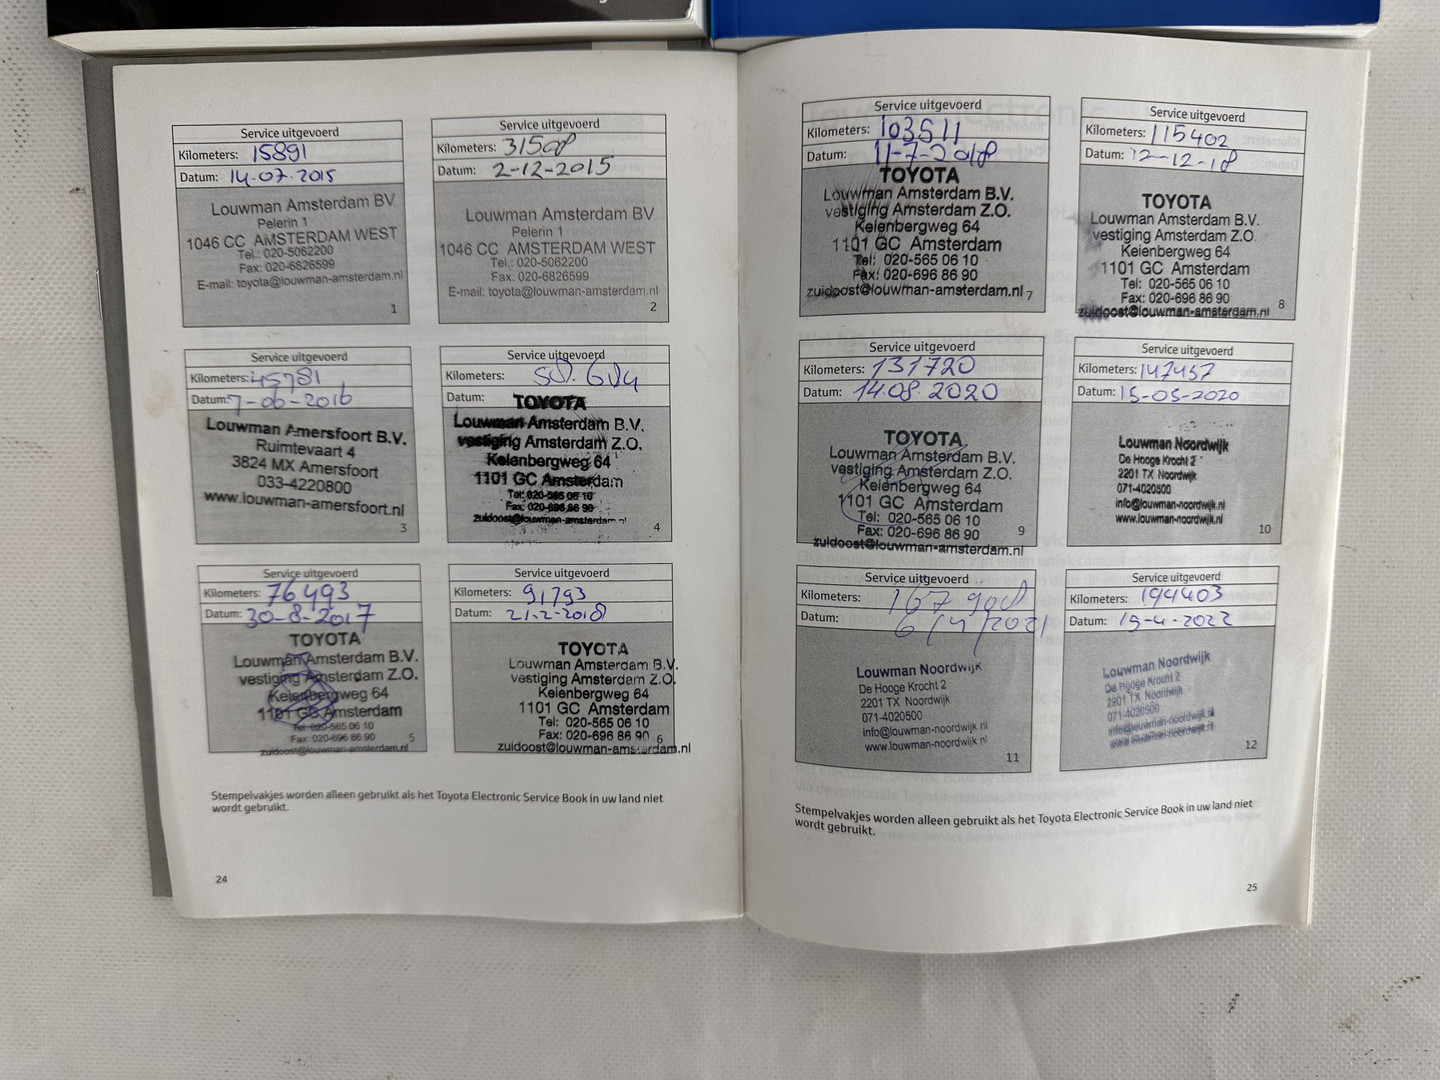 Service uitgevoerd
Kilometers: 15891
Datum: 14-07-2015
Louwman Amsterdam BV
Pelerin 1
1046 CC AMSTERDAM WEST
Tel.: 020-5062200
Fax: 020-6826599
E-mail: toyota@louwman-amsterdam.nl
1
Service uitgevoerd
Kilometers: 31508
Datum: 2-12-2015
Louwman Amsterdam BV
Pelerin 1
1046 CC AMSTERDAM WEST
Tel.: 020-5062200
Fax: 020-6826599
E-mail: toyota@louwman-amsterdam.nl
2
Service uitgevoerd
Kilometers: 45781
Datum: 7-06-2016
Louwman Amersfoort B.V.
Ruimtevaart 4
3824 MX Amersfoort
033-4220800
www.louwman-amersfoort.nl
3
Service uitgevoerd
Kilometers:
Datum:
TOYOTA
Louwman Amsterdam B.V.
vestiging Amsterdam Z.O.
Keienbergweg 64
1101 GC Amsterdam
Tel: 020-565 06 10
Fax: 020-696 86 90
zuidoost@louwman-amsterdam.nl
4
Service uitgevoerd
Kilometers: 76493
Datum: 30-8-2017
TOYOTA
Louwman Amsterdam B.V.
vestiging Amsterdam Z.O.
Keienbergweg 64
1101 GC Amsterdam
Tel: 020-565 06 10
Fax: 020-696 86 90
zuidoost@louwman-amsterdam.nl
5
Service uitgevoerd
Kilometers: 91793
Datum: 21-2-2018
TOYOTA
Louwman Amsterdam B.V.
vestiging Amsterdam Z.O.
Keienbergweg 64
1101 GC Amsterdam
Tel: 020-565 06 10
Fax: 020-696 86 90
zuidoost@louwman-amsterdam.nl
6
Stempelvakjes worden alleen gebruikt als het Toyota Electronic Service Book in uw land niet
wordt gebruikt.
24
Service uitgevoerd
Kilometers: 103511
Datum: 11-7-2018
TOYOTA
Louwman Amsterdam B.V.
vestiging Amsterdam Z.O.
Keienbergweg 64
1101 GC Amsterdam
Tel: 020-565 06 10
Fax: 020-696 86 90
zuidoost@louwman-amsterdam.nl
7
Service uitgevoerd
Kilometers: 115402
Datum: 12-12-18
TOYOTA
Louwman Amsterdam B.V.
vestiging Amsterdam Z.O.
Keienbergweg 64
1101 GC Amsterdam
Tel: 020-565 06 10
Fax: 020-696 86 90
zuidoost@louwman-amsterdam.nl
8
Service uitgevoerd
Kilometers: 131720
Datum: 14.08.2020
TOYOTA
Louwman Amsterdam B.V.
vestiging Amsterdam Z.O.
Keienbergweg 64
1101 GC Amsterdam
Tel: 020-565 06 10
Fax: 020-696 86 90
zuidoost@louwman-amsterdam.nl
9
Service uitgevoerd
Kilometers: 147457
Datum: 15-05-2020
Louwman Noordwijk
De Hooge Krocht 2
2201 TX Noordwijk
071-4020500
info@louwman-noordwijk.nl
www.louwman-noordwijk.nl
10
Service uitgevoerd
Kilometers: 167908
Datum:
Louwman Noordwijk
De Hooge Krocht 2
2201 TX Noordwijk
071-4020500
info@louwman-noordwijk.nl
www.louwman-noordwijk.nl
11
Service uitgevoerd
Kilometers: 194403
Datum: 19-4-2022
Louwman Noordwijk
De Hooge Krocht 2
2201 TX Noordwijk
071-4020500
info@louwman-noordwijk.nl
www.louwman-noordwijk.nl
12
Stempelvakjes worden alleen gebruikt als het Toyota Electronic Service Book in uw land niet
wordt gebruikt.
25